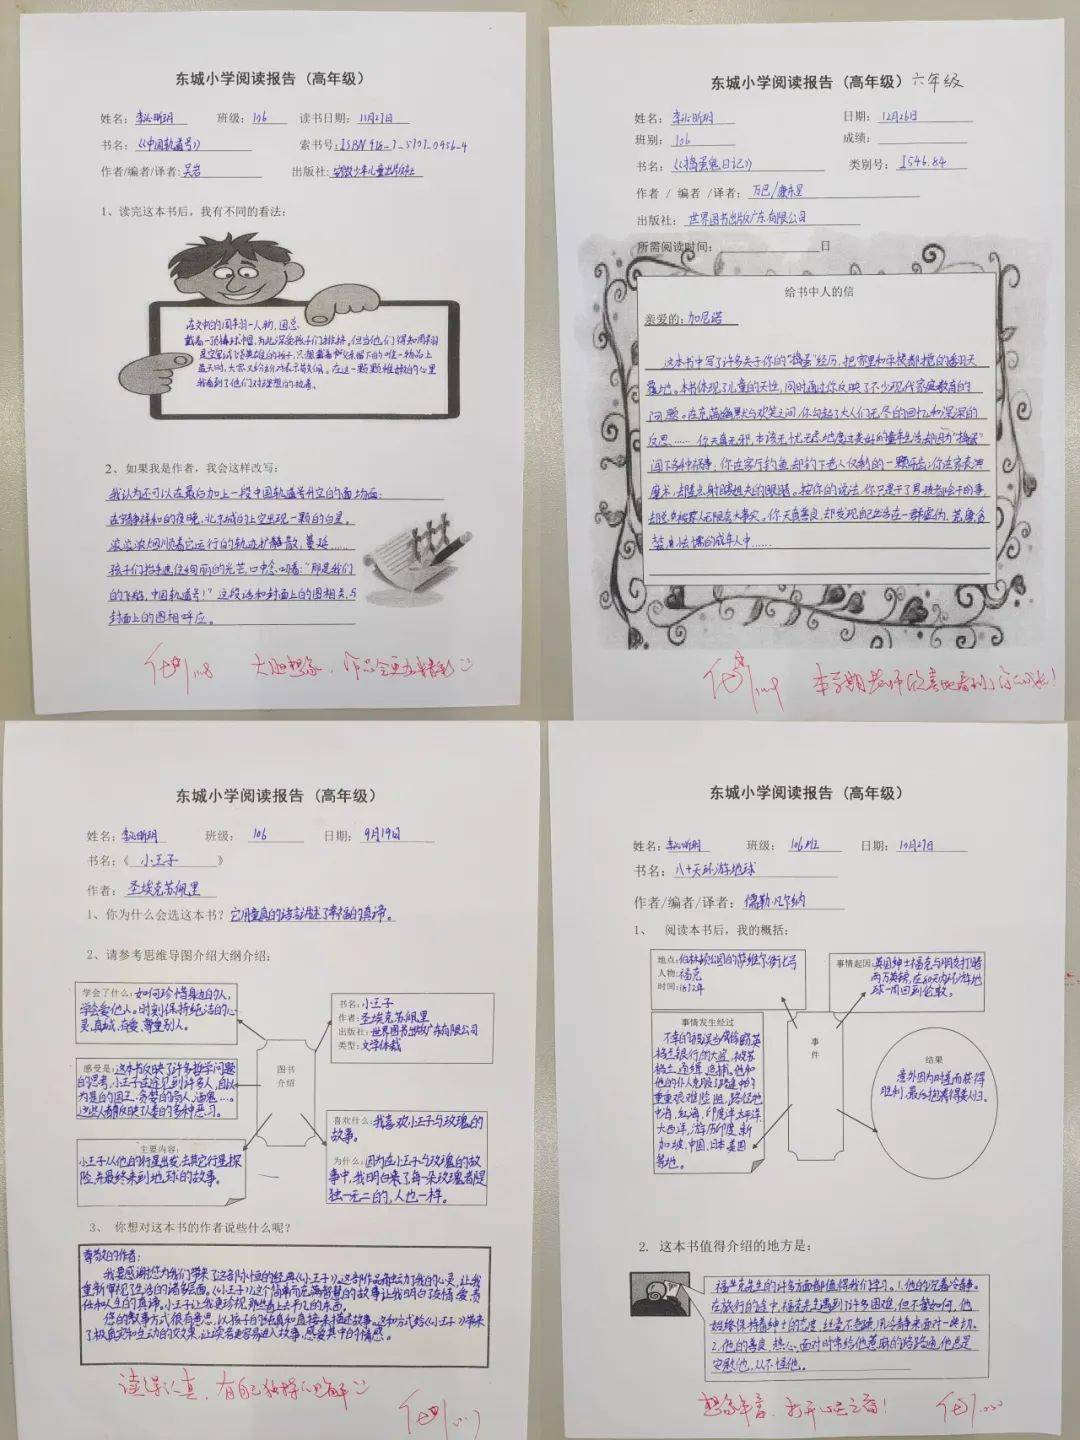 东城小学阅读报告（高年级）
姓名： 班级：106 读书日期：11月27日
书名：《中国轨道号》 索书号：ISBN 978-7-5707-0456-4
作者/编者/译者：吴岩 出版社：安徽少年儿童出版社
1、读完这本书后，我有不同的看法：
在文中的周翔一人物，
戴着一顶棒球帽，为此深受孩子们排挤，但当他们得知周翔
是空军试飞英雄的孩子，只想戴着父亲留下的唯一物品上
蓝天时，大家又纷纷表示。在这一颗颗稚嫩的心里
我看到了他们对理想的执着。
2、如果我是作者，我会这样改写：
我认为还可以在最后加上一段中国轨道号升空的画面：
在宁静祥和的夜晚，北京城的上空出现一颗的白星。
滚滚浓烟顺着它运行的轨迹扩散，蔓延……
孩子们抬手遮住绚丽的光芒，口中念叨着：“那是我们
的飞船，中国轨道号！”这段话和封面上的图相关，与
封面上的图相呼应。
大胆想象，作品会更加精彩
东城小学阅读报告（高年级）六年级
姓名： 日期：12月26日
班别：106 成绩：
书名：《捣蛋鬼日记》 类别号：I546.84
作者 / 编者 /译者：万巴/康永星
出版社：世界图书出版广东有限公司
所需阅读时间： 日
给书中人的信
亲爱的：加尼诺
这本书中写了许多关于你的“捣蛋”经历，把家里和学校都搅的翻天
覆地。本书体现了儿童的天性，同时通过你反映了不少现代家庭教育的
问题。在充满幽默与欢笑之间，你勾起了大人们无尽的回忆和深深的
反思……你天真无邪，本该无忧无虑地度过美好的童年生活，却因为“捣蛋”
闯下各种祸事，你在客厅钓鱼，却钓下老人仅剩的一颗牙齿；你在家表演
魔术，却差点射瞎姐夫的眼睛。按你的说法，你只是干了男孩都会干的事，
却总被家人无限放大事实。你天真善良，却发现自己生活在一群虚伪、贪
婪、怯懦的成年人中……
本学期老师欣喜地看到了你的成长！
东城小学阅读报告（高年级）
姓名： 班级：106 日期：9月19日
书名：《 小王子 》
作者：圣埃克苏佩里
1、你为什么会选这本书？它用童真的语言讲述了幸福的真谛。
2、请参考思维导图介绍大纲介绍：
学会了什么：如何珍惜身边的人，
学会爱他人。时刻保持纯洁的心
灵，真诚、有爱、尊重别人。
书名：小王子
作者：圣埃克苏佩里
出版社：世界图书出版广东有限公司
类型：文学体裁
图书
介绍
感受是：这本书反映了许多哲学问题
的思考，小王子在途见到许多人，自以
为是的国王、贪婪的商人、酒鬼……
这些人都反映了人类的多种恶习。
主要内容：
小王子从他的行星出发，去其它行星探
险，并最终来到地球的故事。
喜欢什么：我喜欢小王子与玫瑰的
故事。
为什么：因为在小王子与玫瑰的故
事中，我明白了每一朵玫瑰都是
独一无二的，人也一样。
3、 你想对这本书的作者说些什么呢？
尊敬的作者：
我要感谢您为我们带来了这部永恒的经典《小王子》。这部作品触动了我的心灵，让我
重新审视了生活的诸多层面。《小王子》这个简单而充满智慧的故事让我明白了友情、爱、责
任和人生的真谛。小王子让我更珍视那些看上去平凡的东西。
您的叙事方式很有意思，以孩子的纯真和直接来描述故事。这种方式给《小王子》带来
了极真实和生动的效果，让读者更容易进入故事，感受其中的情感。
读得认真，有自己独特的见解
东城小学阅读报告（高年级）
姓名： 班级：106班 日期：10月27日
书名：八十天环游地球
作者/编者/译者：儒勒·凡尔纳
1、 阅读本书后，我的概括：
地点：伯林顿公园的萨维尔街七号
人物：福克
时间：1872年
事情起因：英国绅士福克与朋友打赌
两万英镑，在80天内环游地
球一周回到伦敦。
事情发生经过
不幸的被误当偷窃英
格兰银行的大盗，被苏
格兰 追捕。他和
他的仆人克服了路途中的
重重艰难险阻，路经地
中海、红海、印度洋、太平洋、
大西洋，游历印度、新
加坡、中国、日本、美国
等地。
事
件
结果
意外因为时差而获得
胜利，最后抱得美人归。
2. 这本书值得介绍的地方是：
福克先生的许多方面都值得我们学习。1.他的沉着冷静。
在旅行的途中，福克先生遇到了许多困难，但不管如何，他
始终保持着绅士的态度，丝毫不急躁，用冷静来面对一切。
2.他的善良、热心。面对时常给他惹麻烦的路路通，他总是
安慰他，从不怪他。